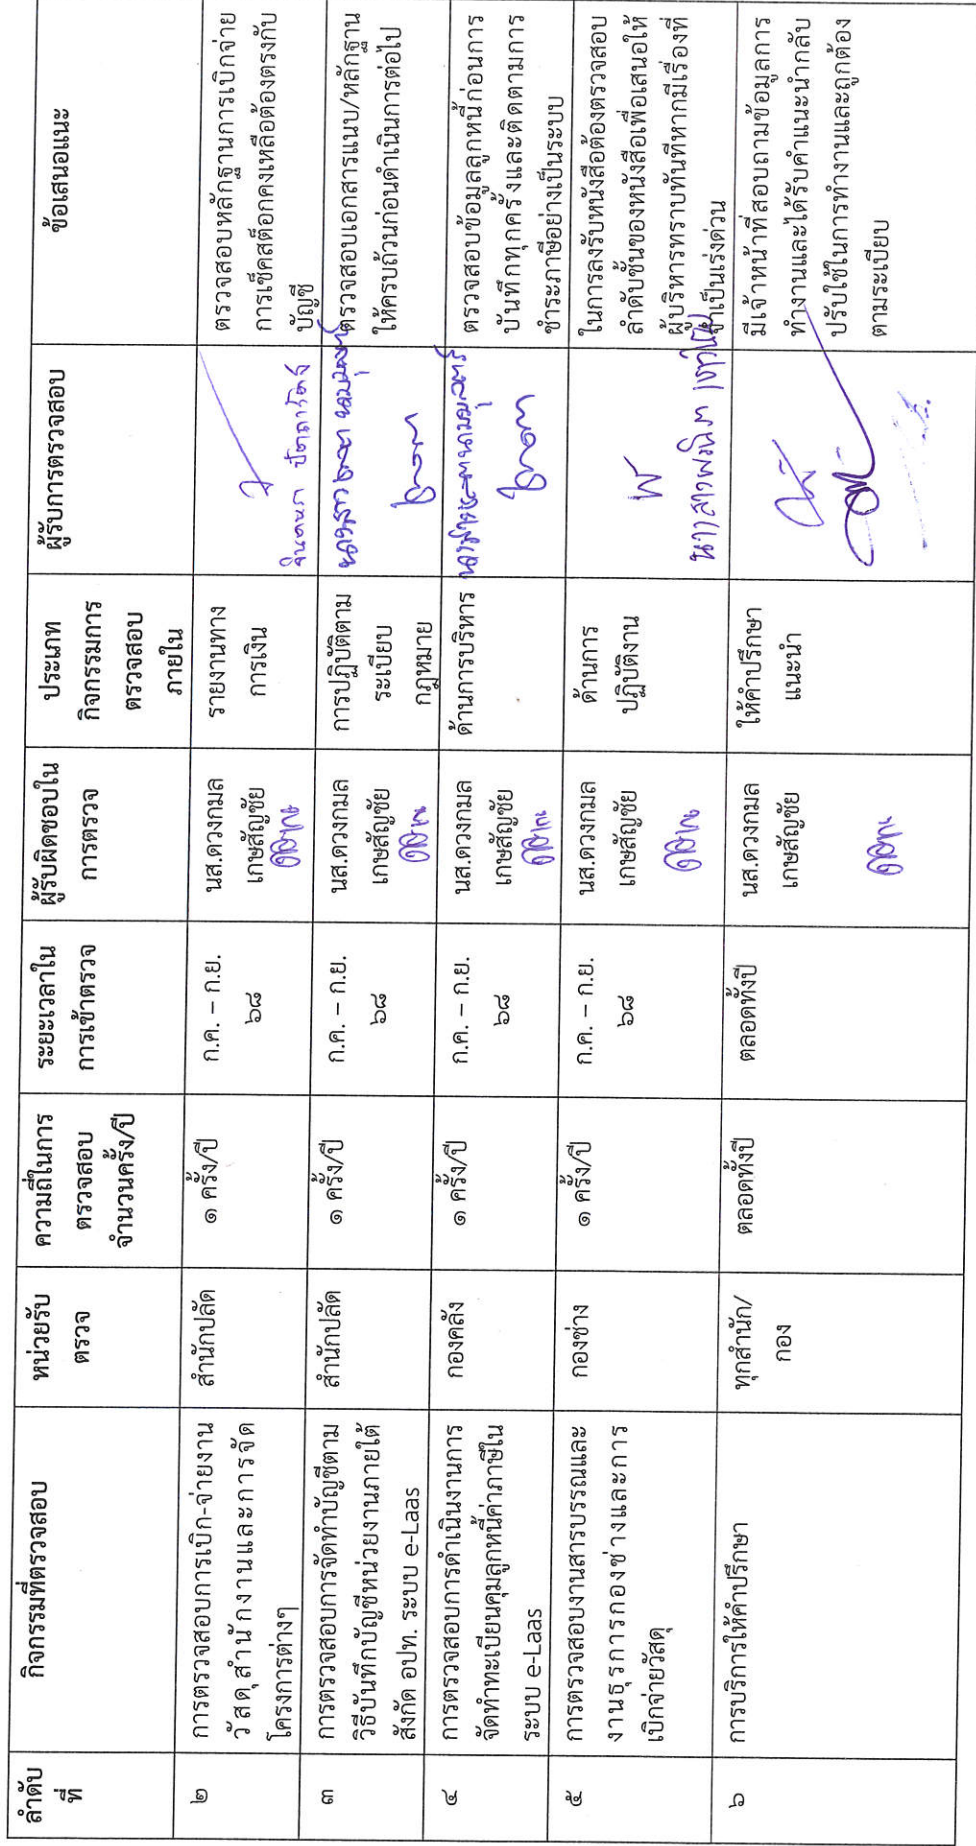 ลำดับ
ที่
กิจกรรมที่ตรวจสอบ
หน่วยรับ
ตรวจ
ความถี่ในการ
ตรวจสอบ
จำนวนครั้ง/ปี
ระยะเวลาใน
การเข้าตรวจ
ผู้รับผิดชอบใน
การตรวจ
ประเภท
กิจกรรมการ
ตรวจสอบ
ภายใน
ผู้รับการตรวจสอบ
ข้อเสนอแนะ
๒
การตรวจสอบการเบิก-จ่ายงาน
วัสดุสำนักงานและการจัด
โครงการต่างๆ
สำนักปลัด
๑ ครั้ง/ปี
ก.ค. – ก.ย.
๖๘
นส.ดวงกมล
เกษสัญชัย
รายงานทาง
การเงิน
ตรวจสอบหลักฐานการเบิกจ่าย
การเช็คสต็อกคงเหลือต้องตรงกับ
บัญชี
๓
การตรวจสอบการจัดทำบัญชีตาม
วิธีบันทึกบัญชีหน่วยงานภายใต้
สังกัด อปท. ระบบ e-Laas
สำนักปลัด
๑ ครั้ง/ปี
ก.ค. – ก.ย.
๖๘
นส.ดวงกมล
เกษสัญชัย
การปฏิบัติตาม
ระเบียบ
กฎหมาย
ตรวจสอบเอกสารแนบ/หลักฐาน
ให้ครบถ้วนก่อนดำเนินการต่อไป
๔
การตรวจสอบการดำเนินงานการ
จัดทำทะเบียนคุมลูกหนี้ค่าภาษีใน
ระบบ e-Laas
กองคลัง
๑ ครั้ง/ปี
ก.ค. – ก.ย.
๖๘
นส.ดวงกมล
เกษสัญชัย
ด้านการบริหาร
ตรวจสอบข้อมูลลูกหนี้ก่อนการ
บันทึกทุกครั้งและติดตามการ
ชำระภาษีอย่างเป็นระบบ
๕
การตรวจสอบงานสารบรรณและ
งานธุรการกองช่างและการ
เบิกจ่ายวัสดุ
กองช่าง
๑ ครั้ง/ปี
ก.ค. – ก.ย.
๖๘
นส.ดวงกมล
เกษสัญชัย
ด้านการ
ปฏิบัติงาน
ในการลงรับหนังสือต้องตรวจสอบ
ลำดับชั้นของหนังสือเพื่อเสนอให้
ผู้บริหารทราบทันทีหากมีเรื่องที่
เป็นเร่งด่วน
๖
การบริการให้คำปรึกษา
ทุกสำนัก/
กอง
ตลอดทั้งปี
ตลอดทั้งปี
นส.ดวงกมล
เกษสัญชัย
ให้คำปรึกษา
แนะนำ
มีเจ้าหน้าที่สอบถามข้อมูลการ
ทำงานและได้รับคำแนะนำกลับ
ปรับใช้ในการทำงานและถูกต้อง
ตามระเบียบ